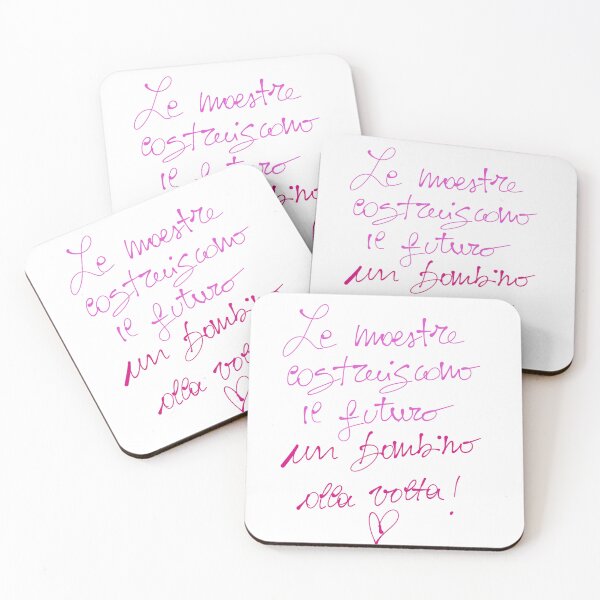 Le maestre
costruiscono
il futuro
Le maestre
costruiscono
il futuro
un bambino
Le maestre
costruiscono
il futuro
un bambino
alla volta
Le maestre
costruiscono
il futuro
un bambino
alla volta!